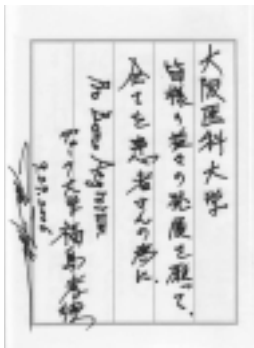 大阪医科大学
皆様の益々の発展を願って、
全てを患者さんの為に.
Pro Bono Aegrotum
デューク大学 福島孝徳